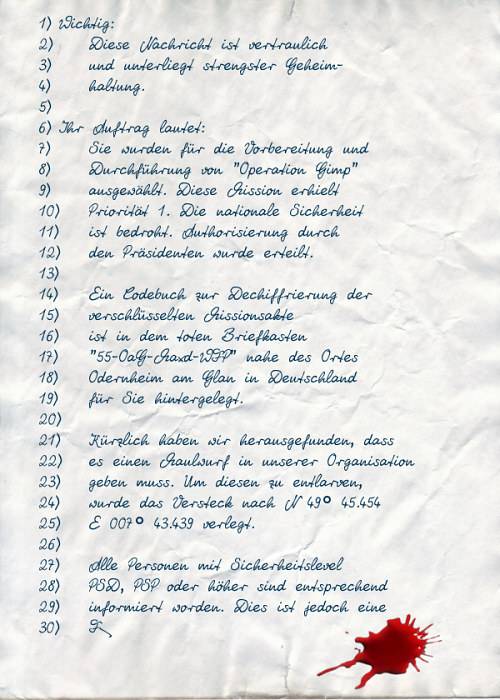 1) Wichtig:
2) Diese Nachricht ist vertraulich
3) und unterliegt strengster Geheim-
4) haltung.
5)
6) Ihr Auftrag lautet:
7) Sie wurden für die Vorbereitung und
8) Durchführung von "Operation Gimp"
9) ausgewählt. Diese Mission erhielt
10) Priorität 1. Die nationale Sicherheit
11) ist bedroht. Authorisierung durch
12) den Präsidenten wurde erteilt.
13)
14) Ein Codebuch zur Dechiffrierung der
15) verschlüsselten Missionsakte
16) ist in dem toten Briefkasten
17) nahe des Ortes
18) Odernheim am Glan in Deutschland
19) für Sie hintergelegt.
20)
21) Kürzlich haben wir herausgefunden, dass
22) es einen Maulwurf in unserer Organisation
23) geben muss. Um diesen zu entlarven,
24) wurde das Versteck nach N 49° 45.454
25) E 007° 43.439 verlegt.
26)
27) Alle Personen mit Sicherheitslevel
28) PSD, PSP oder höher sind entsprechend
29) informiert worden. Dies ist jedoch eine
30)